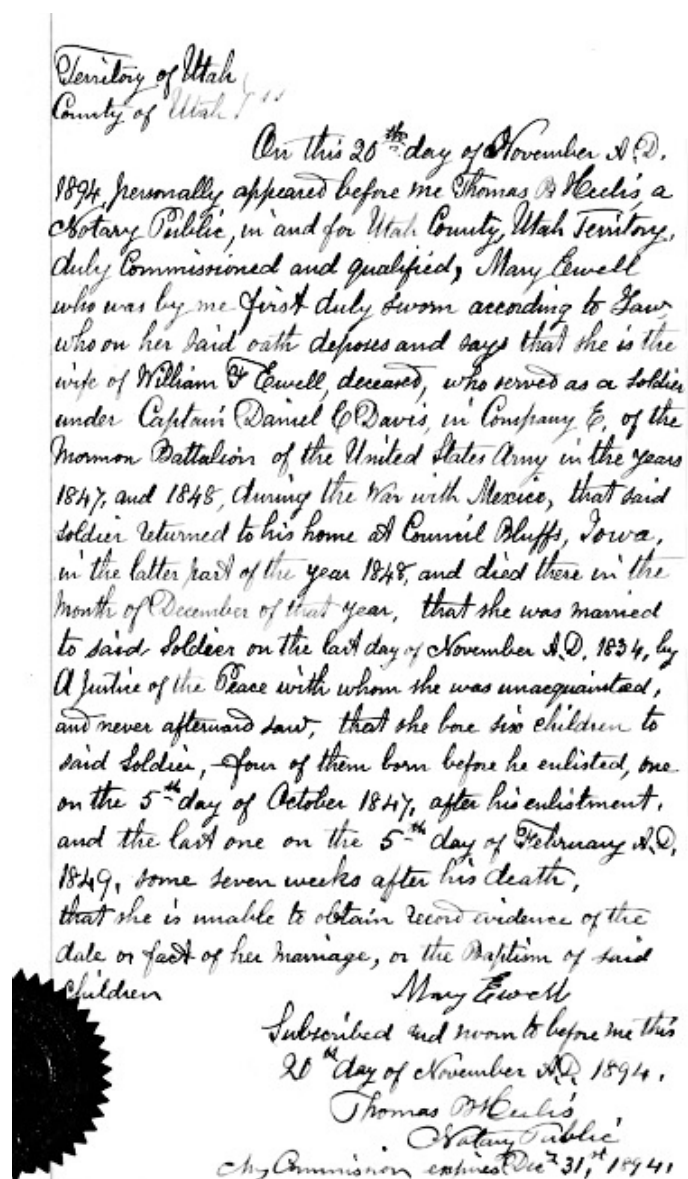 Territory of Utah
County of Utah } ss
On this 20th day of November A.D.
1894, personally appeared before me Thomas B Heelis, a
Notary Public, in and for Utah County, Utah Territory,
duly Commissioned and qualified, Mary Ewell
who was by me first duly sworn according to Law,
who on her said oath deposes and says that she is the
wife of William F Ewell, deceased, who served as a soldier
under Captain Daniel C Davis, in Company E, of the
Mormon Battalion of the United States Army in the years
1847, and 1848, during the War with Mexico, that said
soldier returned to his home at Council Bluffs, Iowa,
in the latter part of the year 1848, and died there in the
Month of December of that year, that she was married
to said Soldier on the last day of November A.D. 1834, by
A Justice of the Peace with whom she was unacquainted,
and never afterward saw, that she bore six children to
said Soldier, four of them born before he enlisted, one
on the 5th day of October 1847, after his enlistment,
and the last one on the 5th day of February A.D,
1849, some seven weeks after his death,
that she is unable to obtain record evidence of the
date or fact of her marriage, or the Baptism of said
Children
Mary Ewell
Subscribed and sworn to before me this
20th day of November A.D, 1894.
Thomas B Heelis
Notary Public
My Commission expires Dec 31st, 1894,